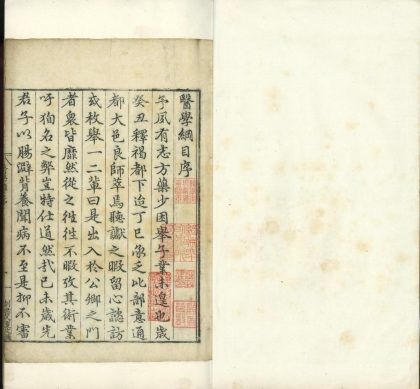 醫學綱目序
予夙有志方藥少困舉子業未遑也歲
癸丑釋褐都下迨丁巳承乏此部意通
都大邑良師萃焉聽讞之暇留心諮訪
或枚舉一二輩曰是出入於公卿之門
者衆皆靡然從之徃徃不暇攷其術業
吁狥名之弊豈特仕道然哉己未歲先
君子以腸澼背養聞病不至是抑不審